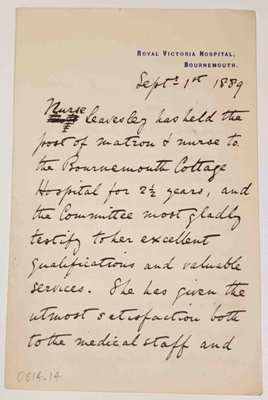 ROYAL VICTORIA HOSPITAL,
BOURNEMOUTH.
Septr 1st 1889
Nurse Leavesley has held the
post of matron & nurse to
the Bournemouth Cottage
Hospital for 2½ years, and
the Committee most gladly
testify to her excellent
qualifications and valuable
services. She has given the
utmost satisfaction both
to the medical staff and
0814.14